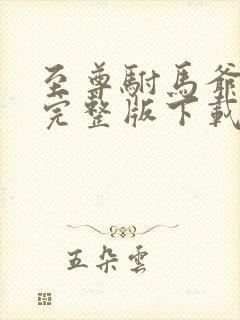 至尊駙馬爺
完整版下載
五朵雲